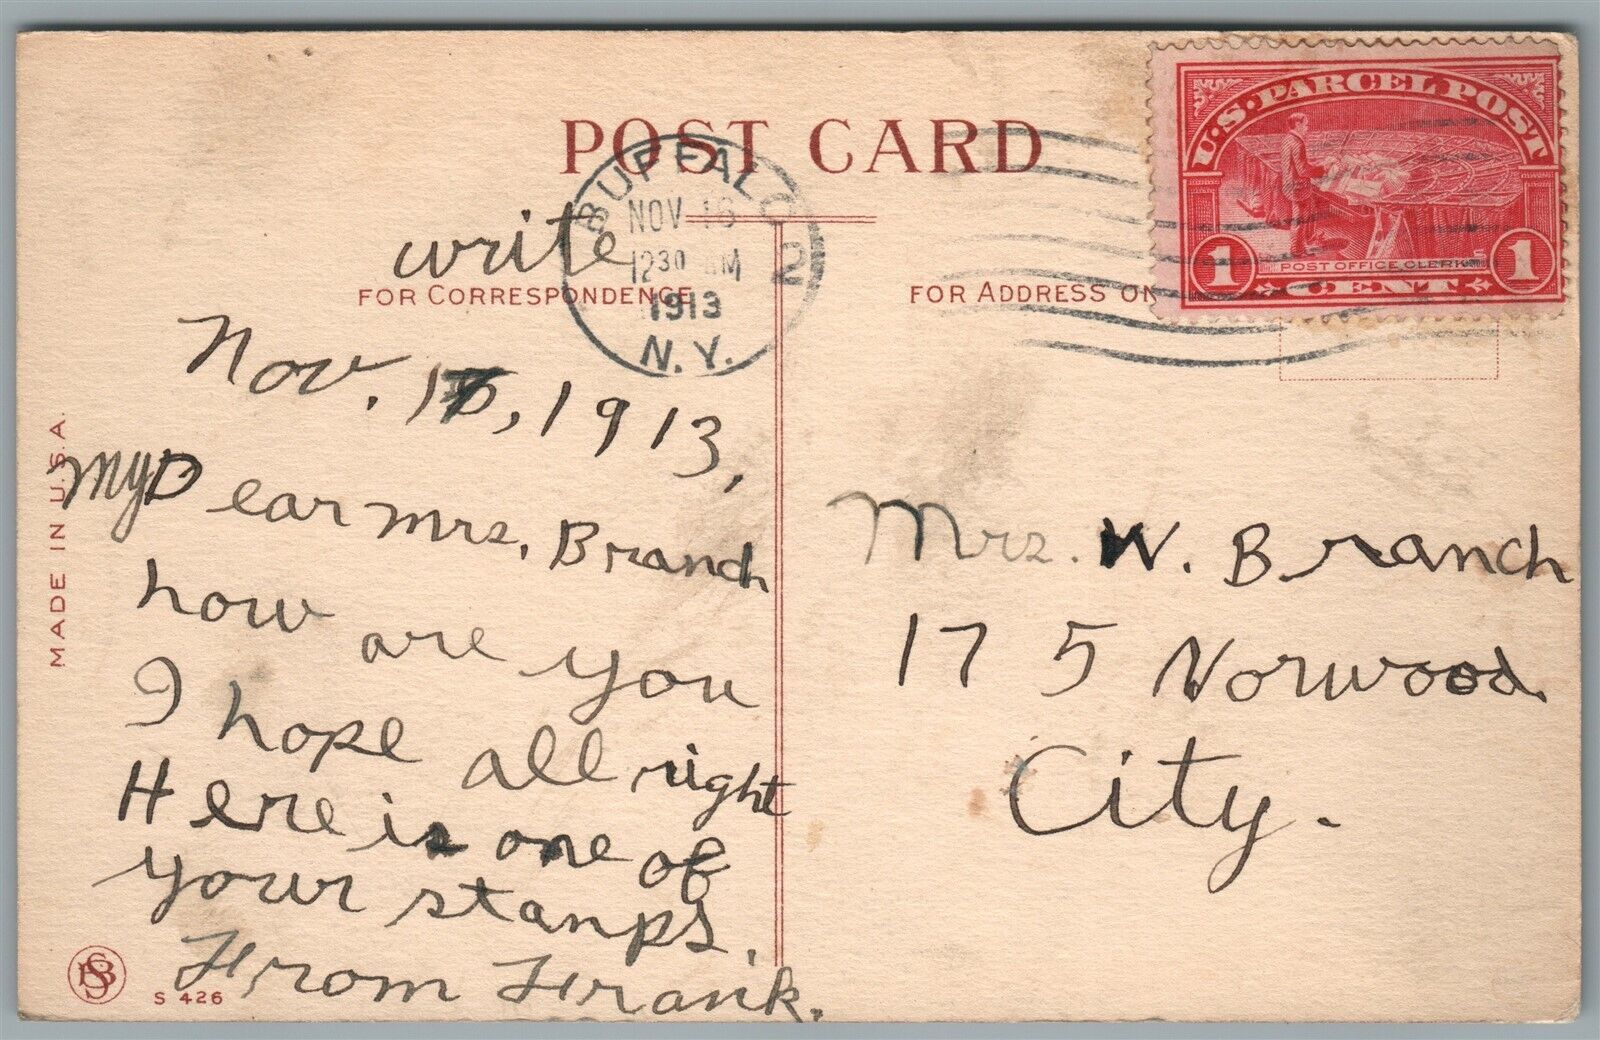 POST CARD
BUFFALO 2
NOV 16
1230 AM
1913
N.Y.
U.S. PARCEL POST
1 POST OFFICE CLERK 1
CENT
write
FOR CORRESPONDENCE
FOR ADDRESS ON
Nov. 1 , 1913,
My Dear Mrs. Branch
how are you
I hope all right
Here is one of
your stamps.
From Frank.
Mrs. W. Branch
175 Norwood.
City.
MADE IN U.S.A.
S 426